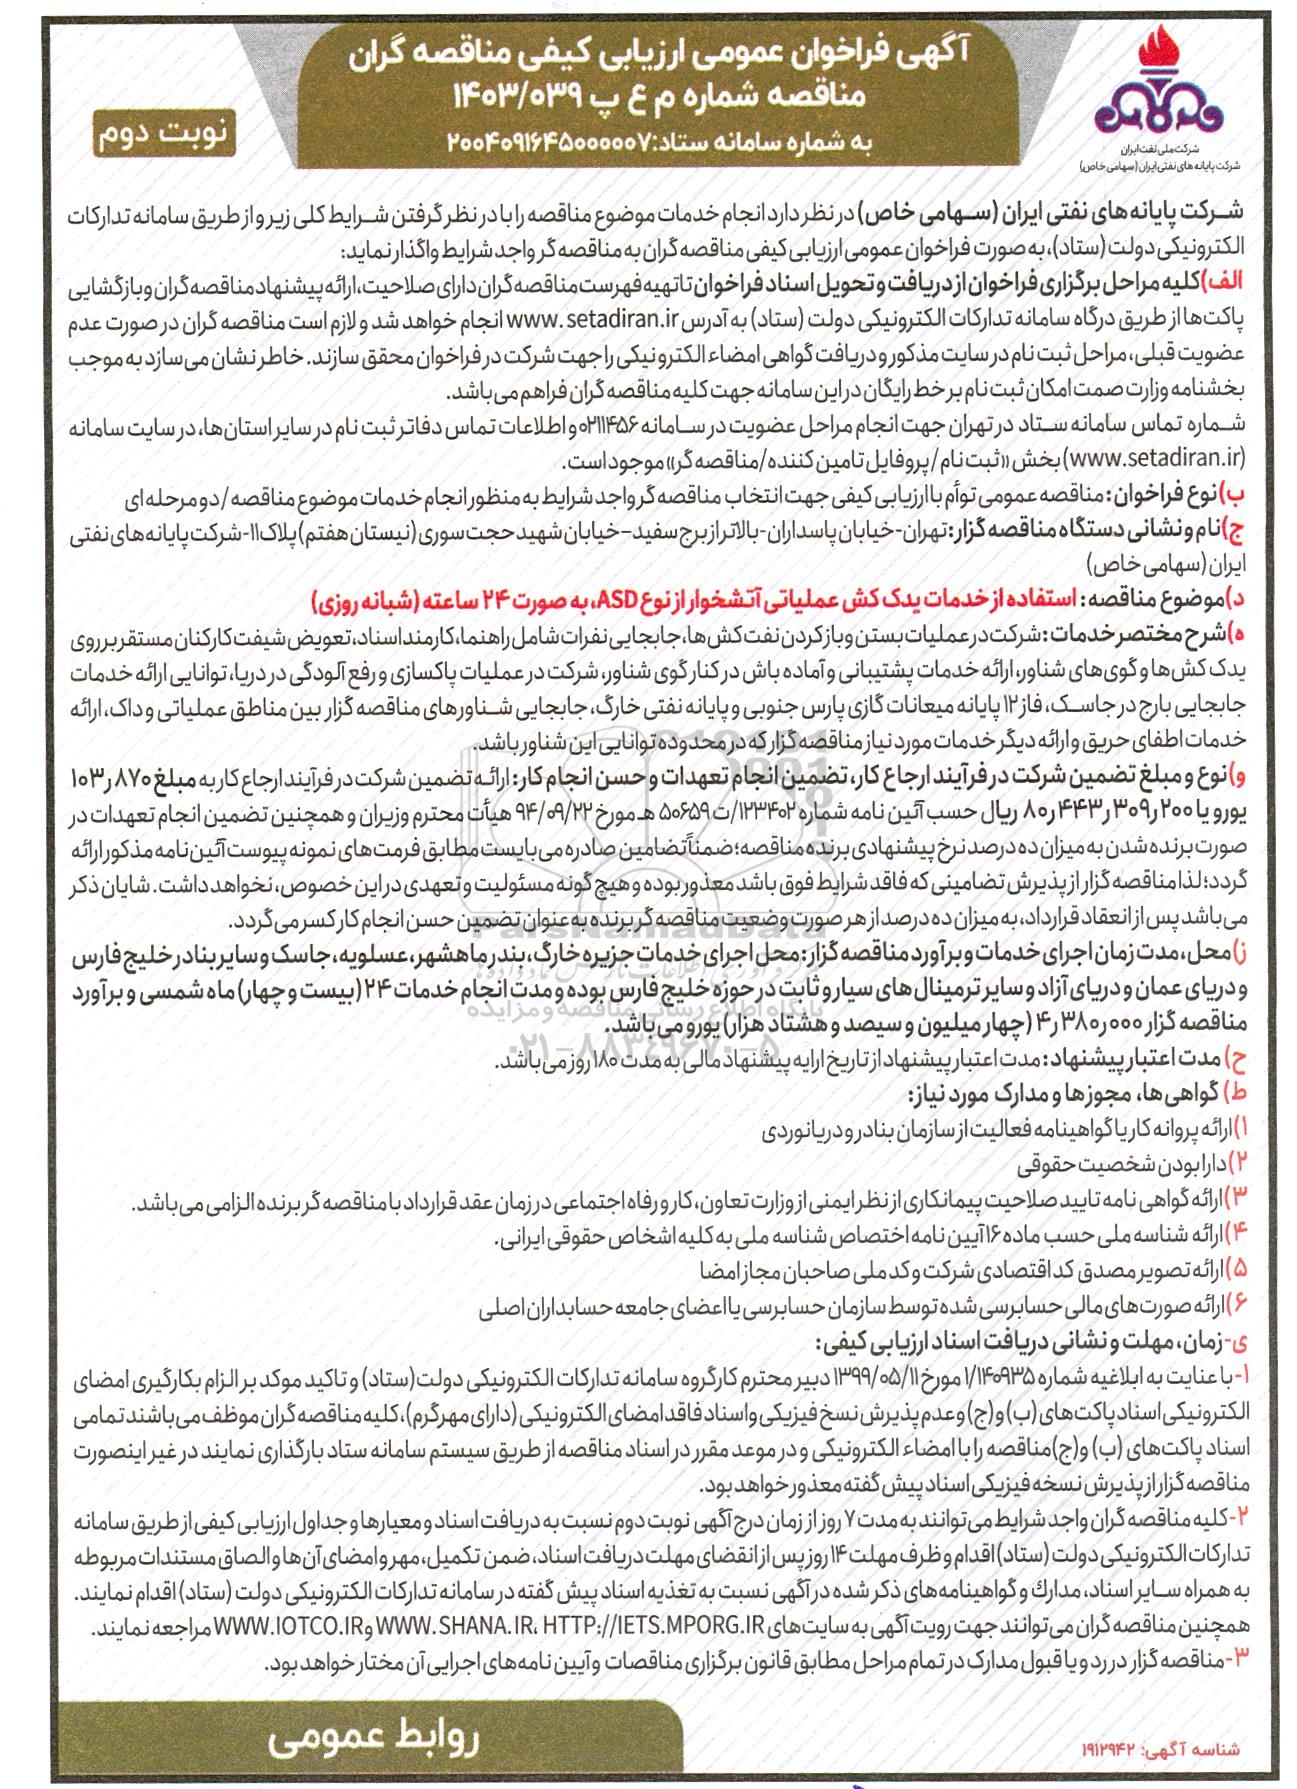 آگهی فراخوان عمومی ارزیابی کیفی مناقصه گران
مناقصه شماره م ع پ ۱۴۰۳/۰۳۹
به شماره سامانه ستاد:۲۰۰۴۰۹۱۶۴۵۰۰۰۰۰۷
نوبت دوم
شرکت ملی نفت ایران
شرکت پایانه های نفتی ایران (سهامی خاص)
شرکت پایانه های نفتی ایران (سهامی خاص) در نظر دارد انجام خدمات موضوع مناقصه را با در نظر گرفتن شرایط کلی زیر و از طریق سامانه تدارکات
الکترونیکی دولت (ستاد)، به صورت فراخوان عمومی ارزیابی کیفی مناقصه گران به مناقصه گر واجد شرایط واگذار نماید:
الف)کلیه مراحل برگزاری فراخوان از دریافت و تحویل اسناد فراخوان تا تهیه فهرست مناقصه گران دارای صلاحیت، ارائه پیشنهاد مناقصه گران و بازگشایی
پاکت ها از طریق درگاه سامانه تدارکات الکترونیکی دولت (ستاد) به آدرس www.setadiran.ir انجام خواهد شد و لازم است مناقصه گران در صورت عدم
عضویت قبلی، مراحل ثبت نام در سایت مذکور و دریافت گواهی امضاء الکترونیکی را جهت شرکت در فراخوان محقق سازند. خاطر نشان می سازد به موجب
بخشنامه وزارت صمت امکان ثبت نام بر خط رایگان در این سامانه جهت کلیه مناقصه گران فراهم می باشد.
شماره تماس سامانه ستاد در تهران جهت انجام مراحل عضویت در سامانه ۰۲۱۱۴۵۶ و اطلاعات تماس دفاتر ثبت نام در سایر استان ها، در سایت سامانه
(www.setadiran.ir) بخش «ثبت نام / پروفایل تامین کننده/مناقصه گر» موجود است.
ب)نوع فراخوان: مناقصه عمومی توأم با ارزیابی کیفی جهت انتخاب مناقصه گر واجد شرایط به منظور انجام خدمات موضوع مناقصه / دو مرحله ای
ج)نام و نشانی دستگاه مناقصه گزار: تهران-خیابان پاسداران-بالاتر از برج سفید–خیابان شهید حجت سوری (نیستان هفتم) پلاک۱۱-شرکت پایانه های نفتی
ایران (سهامی خاص)
د)موضوع مناقصه: استفاده از خدمات یدک کش عملیاتی آتشخوار از نوع ASD، به صورت ۲۴ ساعته (شبانه روزی)
ه)شرح مختصر خدمات: شرکت در عملیات بستن و باز کردن نفت کش ها، جابجایی نفرات شامل راهنما، کارمند اسناد، تعویض شیفت کارکنان مستقر بر روی
یدک کش ها و گوی های شناور، ارائه خدمات پشتیبانی و آماده باش در کنار گوی شناور، شرکت در عملیات پاکسازی و رفع آلودگی در دریا، توانایی ارائه خدمات
جابجایی بارج در جاسک، فاز ۱۲ پایانه میعانات گازی پارس جنوبی و پایانه نفتی خارگ، جابجایی شناورهای مناقصه گزار بین مناطق عملیاتی و داک، ارائه
خدمات اطفای حریق و ارائه دیگر خدمات مورد نیاز مناقصه گزار که در محدوده توانایی این شناور باشد.
و)نوع و مبلغ تضمین شرکت در فرآیند ارجاع کار، تضمین انجام تعهدات و حسن انجام کار: ارائه تضمین شرکت در فرآیند ارجاع کار به مبلغ ۱۰۳٫۸۷۰
یورو یا ۸۰٫۴۴۳٫۳۰۹٫۲۰۰ ریال حسب آئین نامه شماره ۱۲۳۴۰۲/ت ۵۰۶۵۹ هـ مورخ ۹۴/۰۹/۲۲ هیأت محترم وزیران و همچنین تضمین انجام تعهدات در
صورت برنده شدن به میزان ده درصد نرخ پیشنهادی برنده مناقصه؛ ضمناً تضامین صادره می بایست مطابق فرمت های نمونه پیوست آئین نامه مذکور ارائه
گردد؛ لذا مناقصه گزار از پذیرش تضامینی که فاقد شرایط فوق باشد معذور بوده و هیچ گونه مسئولیت و تعهدی در این خصوص، نخواهد داشت. شایان ذکر
می باشد پس از انعقاد قرارداد، به میزان ده درصد از هر صورت وضعیت مناقصه گر برنده به عنوان تضمین حسن انجام کار کسر می گردد.
ز)محل، مدت زمان اجرای خدمات و برآورد مناقصه گزار: محل اجرای خدمات جزیره خارگ، بندر ماهشهر، عسلویه، جاسک و سایر بنادر خلیج فارس
و دریای عمان و دریای آزاد و سایر ترمینال های سیار و ثابت در حوزه خلیج فارس بوده و مدت انجام خدمات ۲۴ (بیست و چهار) ماه شمسی و برآورد
مناقصه گزار ۴٫۳۸۰٫۰۰۰ (چهار میلیون و سیصد و هشتاد هزار) یورو می باشد.
ح) مدت اعتبار پیشنهاد: مدت اعتبار پیشنهاد از تاریخ ارایه پیشنهاد مالی به مدت ۱۸۰ روز می باشد.
ط) گواهی ها، مجوزها و مدارک مورد نیاز:
۱)ارائه پروانه کار یا گواهینامه فعالیت از سازمان بنادر و دریانوردی
۲)دارا بودن شخصیت حقوقی
۳)ارائه گواهی نامه تایید صلاحیت پیمانکاری از نظر ایمنی از وزارت تعاون، کار و رفاه اجتماعی در زمان عقد قرارداد با مناقصه گر برنده الزامی می باشد.
۴)ارائه شناسه ملی حسب ماده ۱۶ آیین نامه اختصاص شناسه ملی به کلیه اشخاص حقوقی ایرانی.
۵)ارائه تصویر مصدق کد اقتصادی شرکت و کد ملی صاحبان مجاز امضا
۶)ارائه صورت های مالی حسابرسی شده توسط سازمان حسابرسی یا اعضای جامعه حسابداران اصلی
ی-زمان، مهلت و نشانی دریافت اسناد ارزیابی کیفی:
۱-با عنایت به ابلاغیه شماره ۱/۱۴۰۹۳۵ مورخ ۱۳۹۹/۰۵/۱۱ دبیر محترم کارگروه سامانه تدارکات الکترونیکی دولت(ستاد) و تاکید موکد بر الزام بکارگیری امضای
الکترونیکی اسناد پاکت های (ب) و (ج) و عدم پذیرش نسخ فیزیکی و اسناد فاقد امضای الکترونیکی (دارای مهر گرم)، کلیه مناقصه گران موظف می باشند تمامی
اسناد پاکت های (ب) و(ج)مناقصه را با امضاء الکترونیکی و در موعد مقرر در اسناد مناقصه از طریق سیستم سامانه ستاد بارگذاری نمایند در غیر اینصورت
مناقصه گزار از پذیرش نسخه فیزیکی اسناد پیش گفته معذور خواهد بود.
۲-کلیه مناقصه گران واجد شرایط می توانند به مدت ۷ روز از زمان درج آگهی نوبت دوم نسبت به دریافت اسناد و معیارها و جداول ارزیابی کیفی از طریق سامانه
تدارکات الکترونیکی دولت (ستاد) اقدام و ظرف مهلت ۱۴ روز پس از انقضای مهلت دریافت اسناد، ضمن تکمیل، مهر و امضای آن ها و الصاق مستندات مربوطه
به همراه سایر اسناد، مدارك و گواهینامه های ذکر شده در آگهی نسبت به تغذیه اسناد پیش گفته در سامانه تدارکات الکترونیکی دولت (ستاد) اقدام نمایند.
همچنین مناقصه گران می توانند جهت رویت آگهی به سایت های WWW.SHANA.IR، HTTP://IETS.MPORG.IR و WWW.IOTCO.IR مراجعه نمایند.
۳-مناقصه گزار در رد و یا قبول مدارک در تمام مراحل مطابق قانون برگزاری مناقصات و آیین نامه های اجرایی آن مختار خواهد بود.
روابط عمومی
شناسه آگهی: ۱۹۱۲۹۴۲
ParsNamadData
پایگاه اطلاع رسانی مناقصه و مزایده
۰۲۱-۸۸۳۴۹۶۷۰-۵